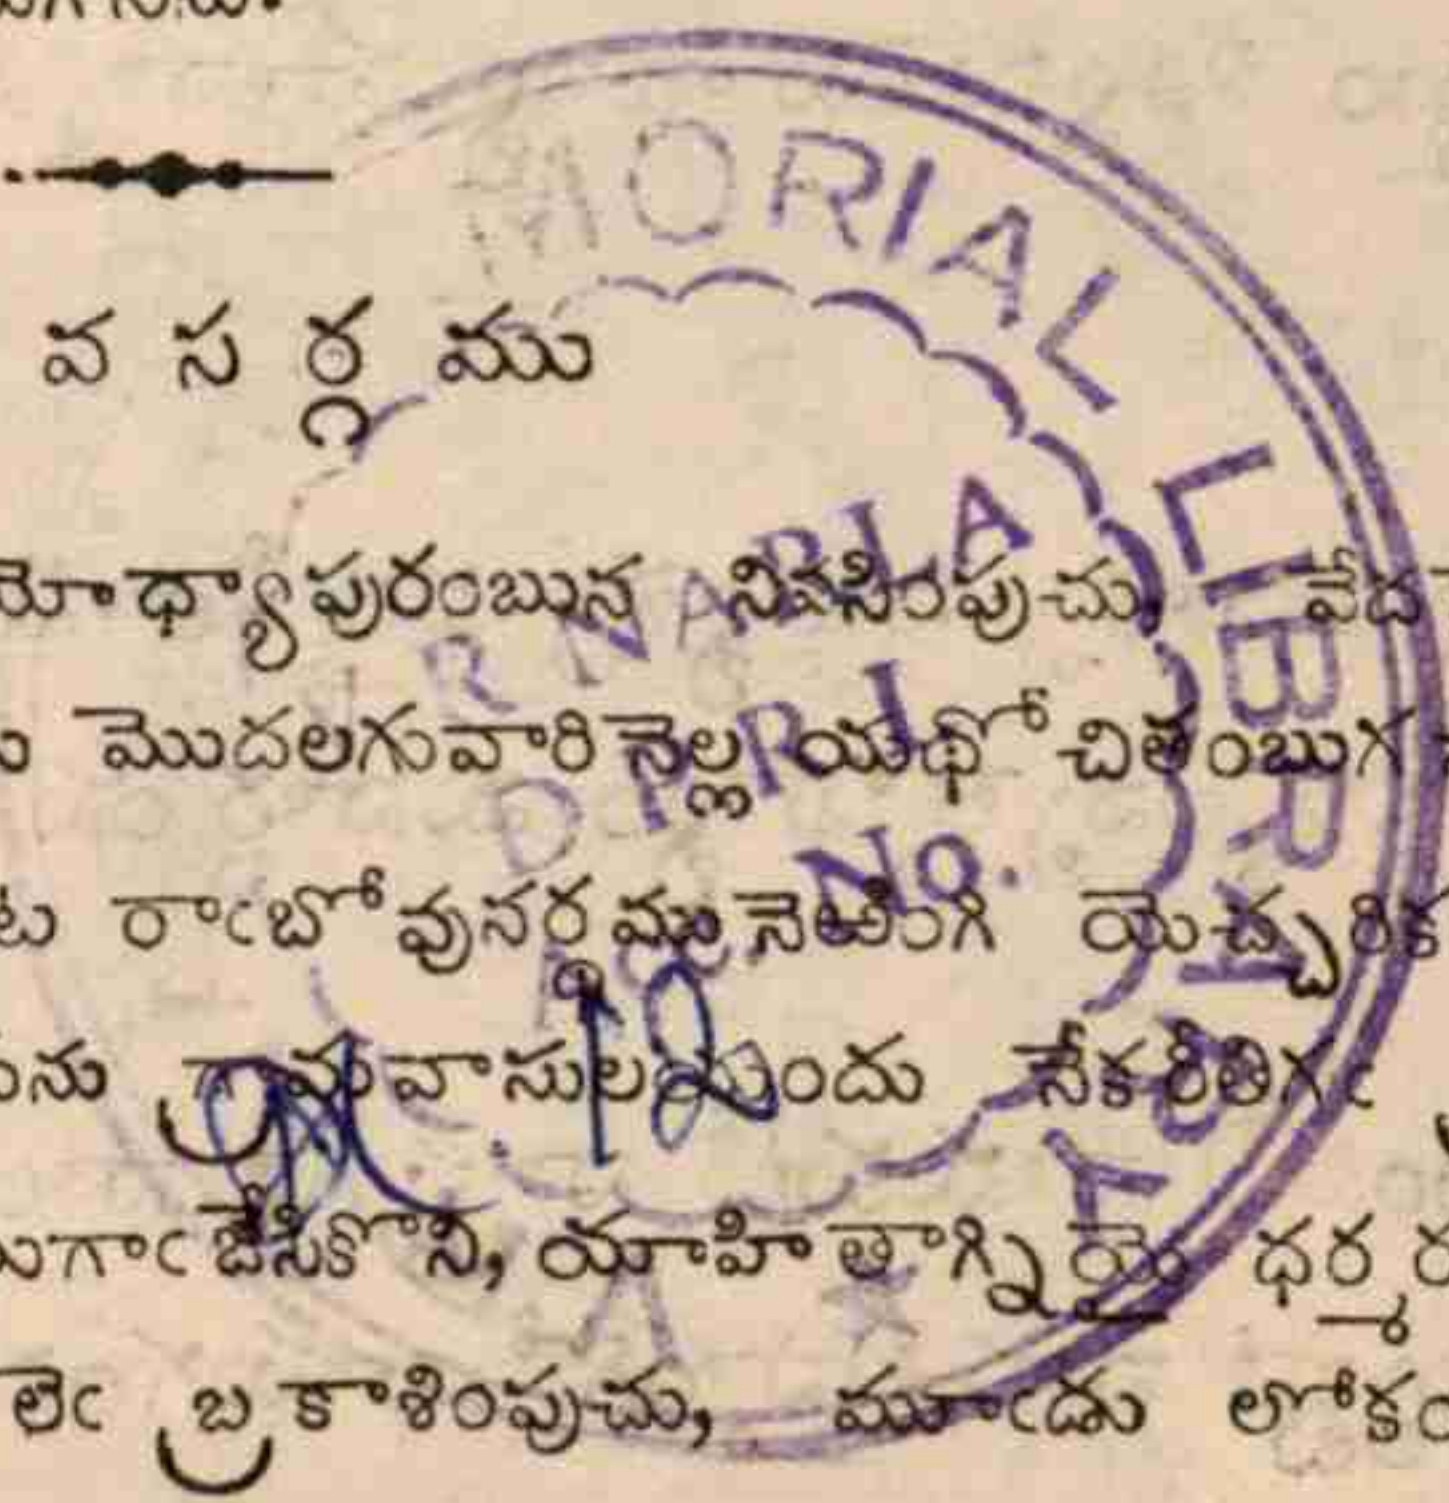 వ స ర్గ ము
యోధ్యాపురంబున నివసింపుచు వేద
మొదలగువారి నెల్ల యథోచితంబుగ
రాఁబోవునర్థము నెఱింగి యెచ్చరిక
ను గ్రామవాసులయందు నేకరీతిగఁ
గాఁ జేసికొని, యాహితాగ్నియై ధర్మ
లెఁ బ్రకాశింపుచు, మూఁడు లోకం
MORIAL LIBRARY
No.
18